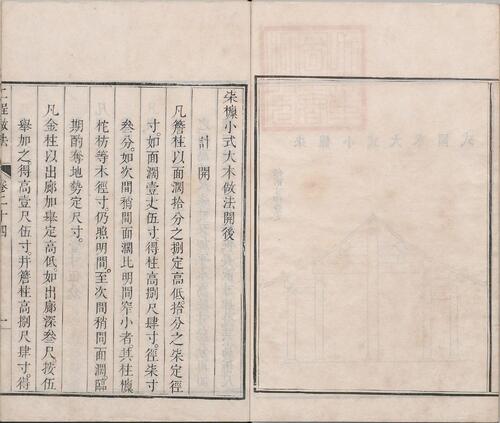 柒檁小式大木做法開後
計開
凡簷柱以面濶拾分之捌定高低拾分之柒定徑
寸如面濶壹丈伍寸得柱高捌尺肆寸徑柒寸
叁分如次間稍間面濶比明間窄小者其柱檁
柁枋等木徑寸仍照明間至次間稍間面濶臨
期酌奪地勢定尺寸
凡金柱以出廊加舉定高低如出廊深叁尺按伍
舉加之得高壹尺伍寸并簷柱高捌尺肆寸得
工程做法
卷二十四
一